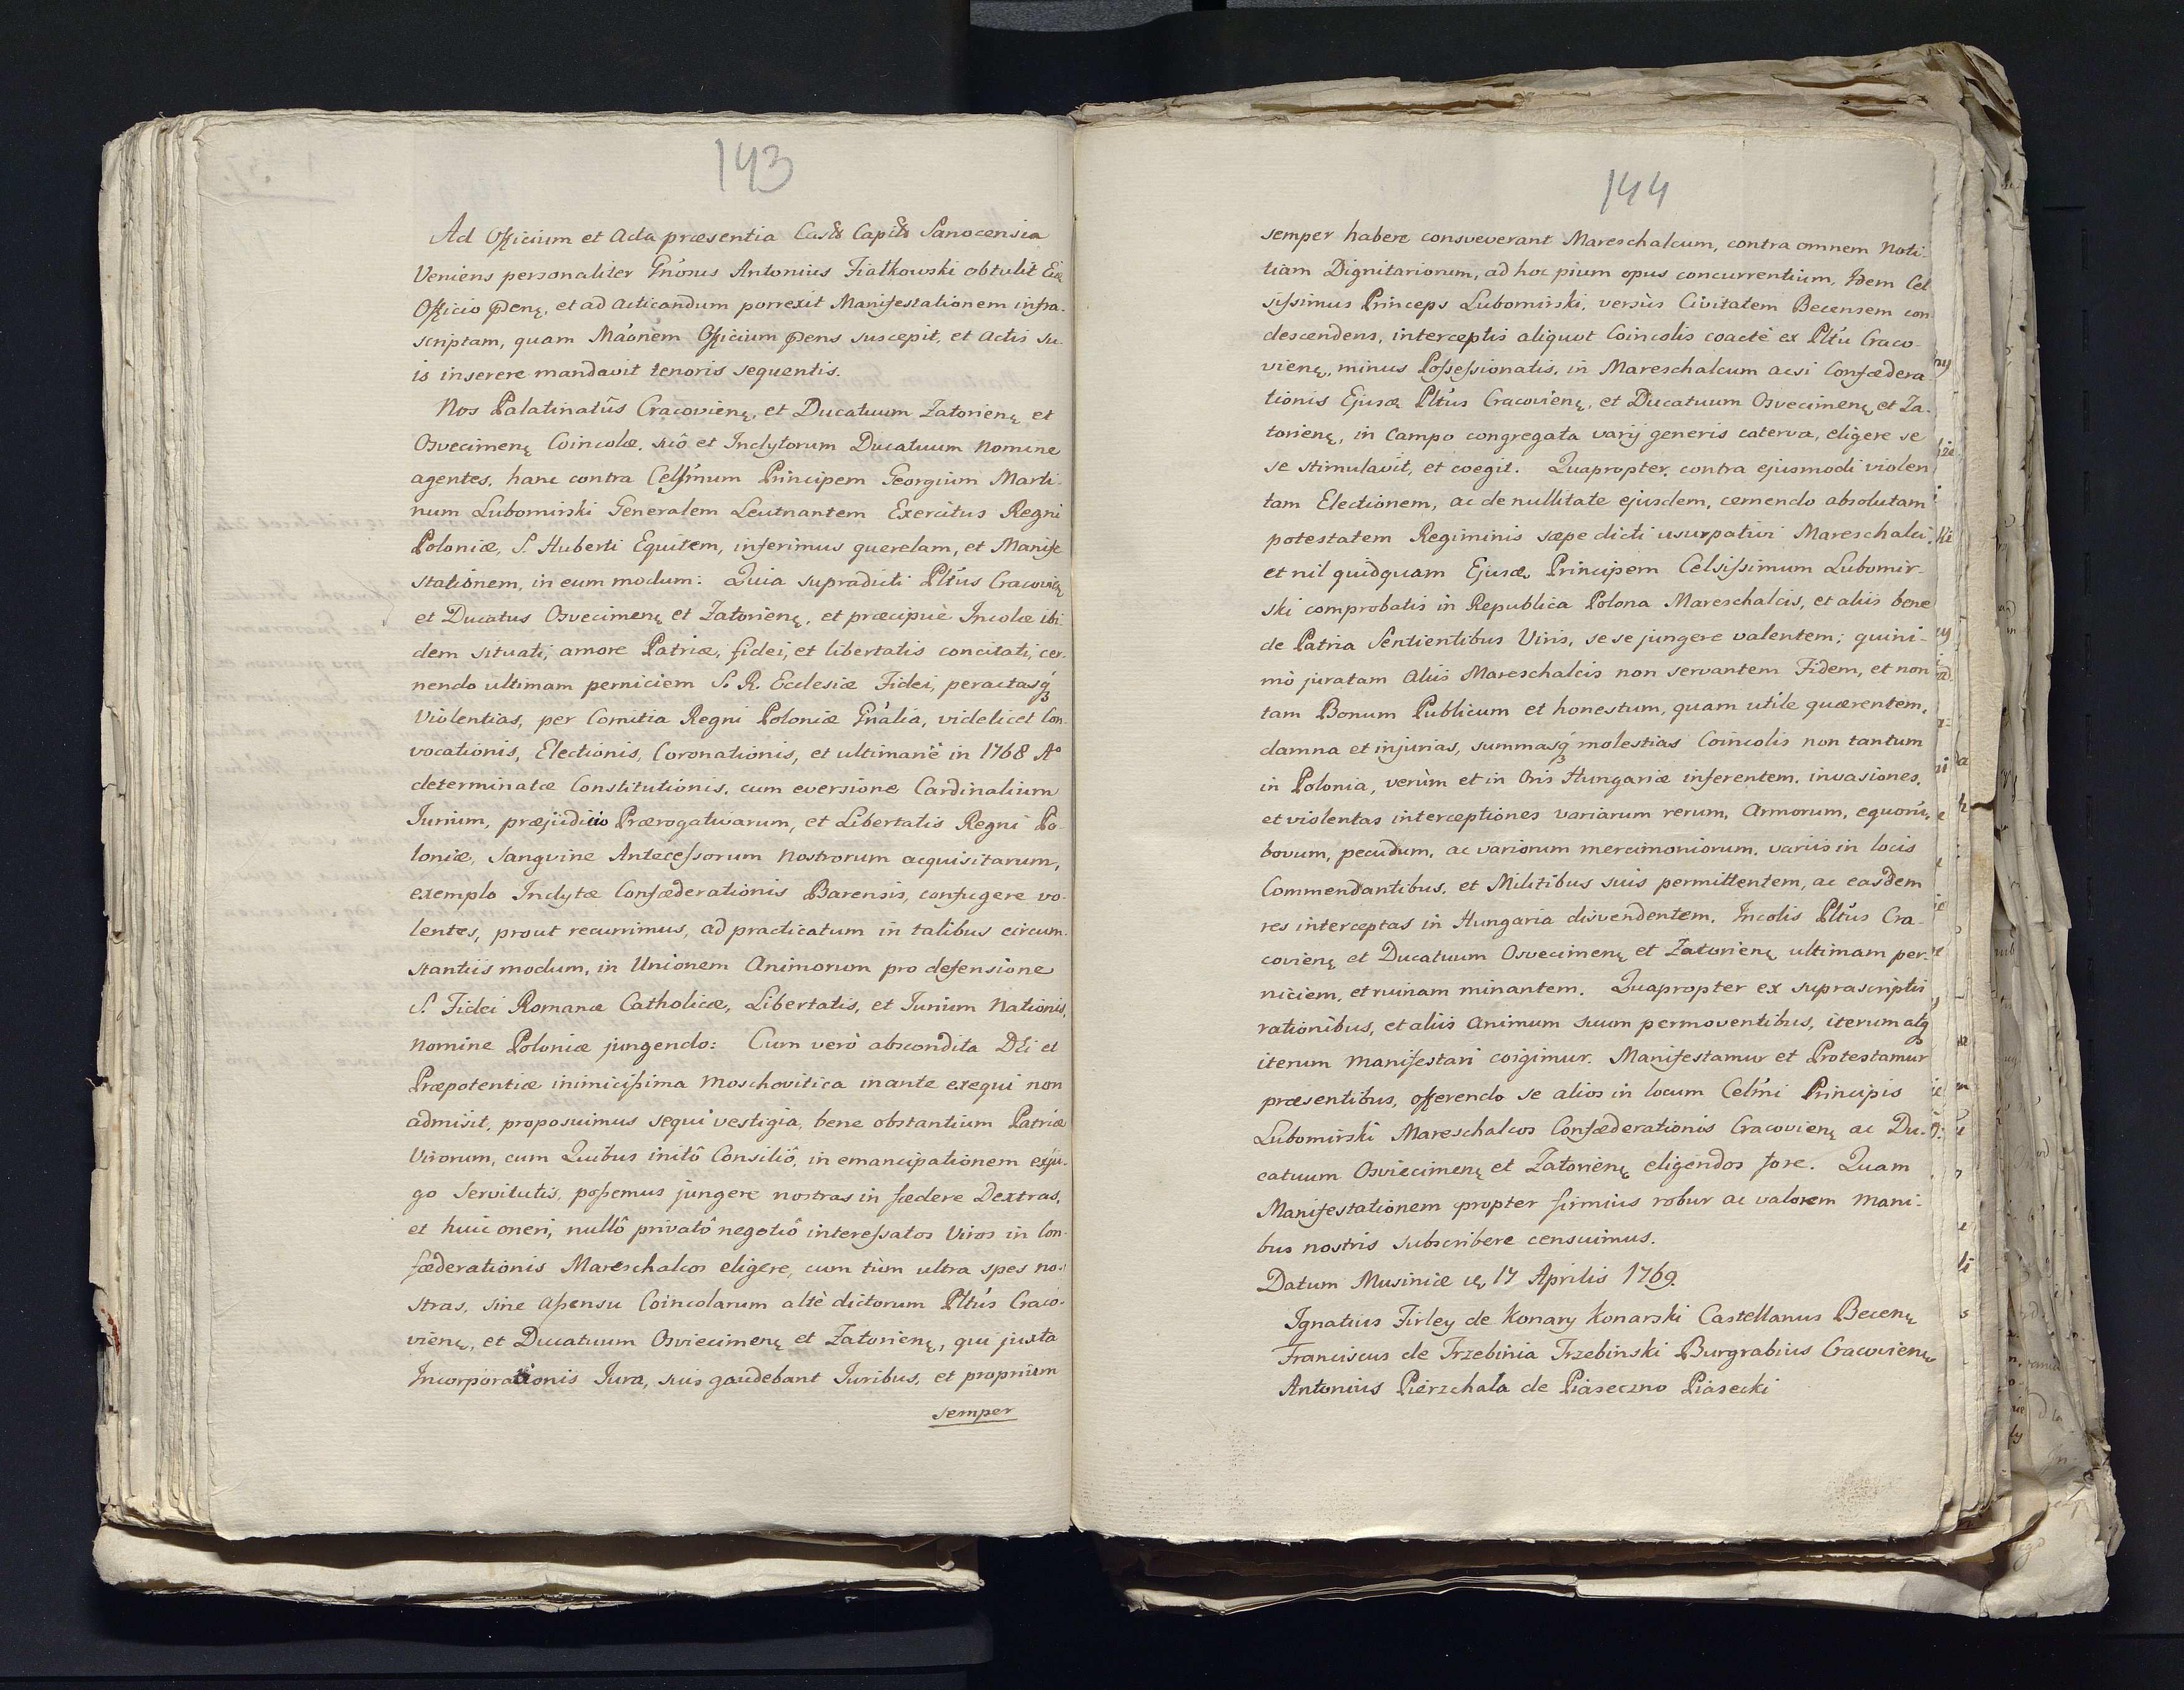 143
Ad Officium et Acta præsentia Castr Capitr Sanocensia
Veniens personaliter Gnosus Antonius Fiałkowski obtulit Eid
Officio pñenę, et ad acticandum porrexit Manifestationem infra-
scriptam, quam Mãonem Officium pñens suscepit, et actis su-
is inserere mandavit tenoris sequentis.
Nos Palatinatûs Cracovienę, et Ducatuum Zatorienę et
Osvecimenę Coincolæ, suô et Inclytorum Ducatuum nomine
agentes, hanc contra Celsimum Principem Georgium Marti-
num Lubomirski Generalem Leutnantem Exercitus Regni
Poloniæ, S. Huberti Equitem, inferimus querelam, et Manife
stationem, in eum modum: Quia supradicti Pltûs Cracovienę
et Ducatus Osvecimenę et Zatorienę, et præcipuè Incolæ ibi
dem situati, amore Patriæ, fidei, et libertatis concitati, cer-
nendo ultimam perniciem S. R. Ecclesiæ Fidei, peractasq́3
Violentias, per Comitia Regni Poloniæ Gnalia, videlicet Con-
vocationis, Electionis, Coronationis, et ultimariè in 1768 Aº
determinatæ Constitutionis, cum eversione Cardinalium
Jurium, præjudicio Prærogativarum, et Libertatis Regni Po-
loniæ, Sangvine Antecessorum nostrorum acquisitarum,
exemplo Inclytæ Confæderationis Barensis, confugere vo-
lentes, prout recurrimus, ad practicatum in talibus circum-
stantiis modum, in Unionem Animorum pro defensione
S. Fidei Romanæ Catholicæ, Libertatis, et Jurium Nationis,
nomine Poloniæ jungendo: Cum verò abscondita Dli et
Præpotentiæ inimicissima Moschovitica inante exequi non
admisit, proposuimus sequi vestigia, bene obstantium Patriæ
Virorum, cum Quibus initô Consiliô, in emancipationem exju-
go Servitutis, possemus jungere nostras in fædere Dextras,
et huic oneri, nullô privatô negotiô interessatos Viros in Con-
fæderationis Mareschalcos eligere, cum tùm ultra spes no-
stras, sine assensu Coincolarum altè dictorum Pltûs Craco-
vienę, et Ducatuum Osviecimenę et Zatorienę, qui juxta
Incorporationis Jura, suis gaudebant Juribus, et proprium
semper
144
semper habere consveverant Mareschalcum, contra omnem noti-
tiam Dignitariorum, ad hoc pium opus concurrentium, Idem Cel
sissimus Princeps Lubomirski, versùs Civitatem Becensem con
descendens, interceptis aliquot Coincolis coactè ex Pltu Craco-
vienę, minus Possessionatis, in Mareschalcum acsi Confædera-
tionis Ejusdæ Pltûs Cracovienę, et Ducatuum Osvecimenę, et Za-
torienę, in Campo congregata varij generis caterva, eligere se
se stimulavit, et coegit. Quapropter, contra ejusmodi violen
tam Electionem, ac de nullitate ejusdem, cernendo absolutam
potestatem Regiminis sæpe dicti usurpativi Mareschalci,
et nil quidquam Ejusdæ Principem Celsissimum Lubomir-
ski comprobatis in Republica Polona Mareschalcis, et aliis bene
de Patria Sentientibus Viris, se se jungere valentem; quini-
mò juratam aliis Mareschalcis non servantem Fidem, et non
tam Bonum Publicum et honestum, quam utile quærentem,
damna et injurias, summasq́3 molestias Coincolis non tantum
in Polonia, verùm et in Oris Hungariæ inferentem, invasiones,
et violentas interceptiones variarum rerum, Armorum, equorũ,
bovum, pecudum, ac variorum mercimoniorum, variis in locis
Commendantibus, et Militibus suis permittentem, ac easdem
res interceptas in Hungaria disvendentem, Incolis Pltûs Cra-
covienę et Ducatuum Osvecimenę et Zatorienę ultimam per-
niciem, et ruinam minantem. Quapropter ex suprascriptis
rationibus, et aliis animum suum permoventibus, iterum atq́
iterum manifestari coigimur. Manifestamur et Protestamur
præsentibus, offerendo se alios in locum Celsmi Principis
Lubomirski Mareschalcos Confæderationis Cracovienę ac Du-
catuum Osviecimenę et Zatorienę eligendos fore. Quam
Manifestationem propter firmius robur ac valorem mani-
bus nostris subscribere censuimus.
Datum Musiniæ ię 17 Aprilis 1769.
Ignatius Firley de Konary Konarski Castellanus Becenę
Franciscus de Trzebinia Trzebinski Burgrabius Cracovienę
Antonius Pierzchała de Piaseczno Piasecki